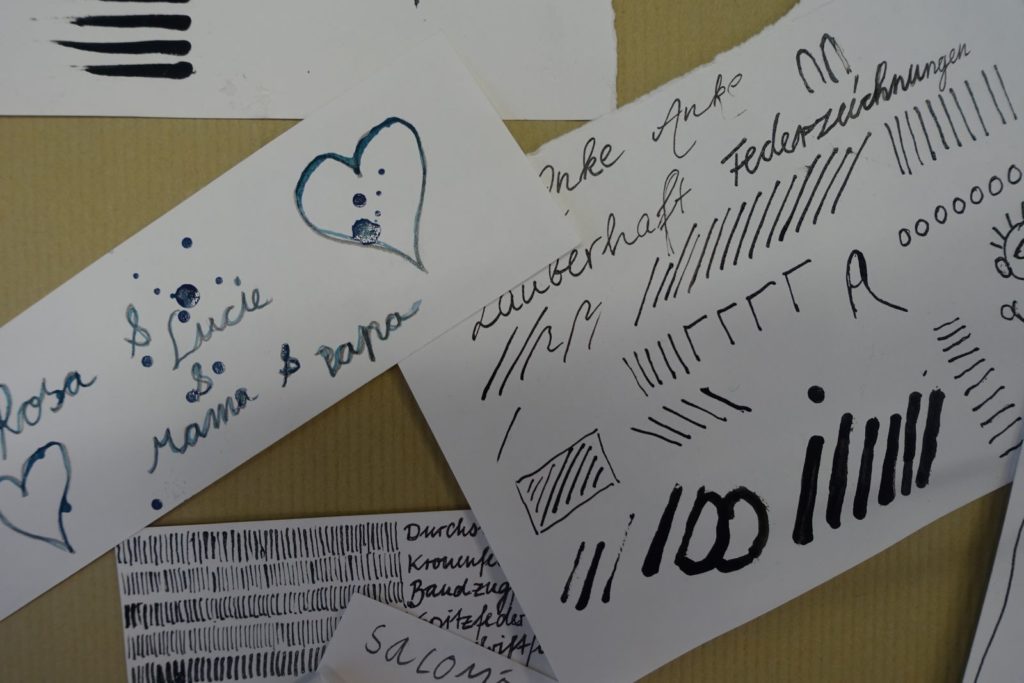 Rosa & Lucie
&
Mama & Papa
nke Anke
Zauberhaft Federzeichnungen
Durchs
Kronenfe
Bandzug
pitzfeder
Salom